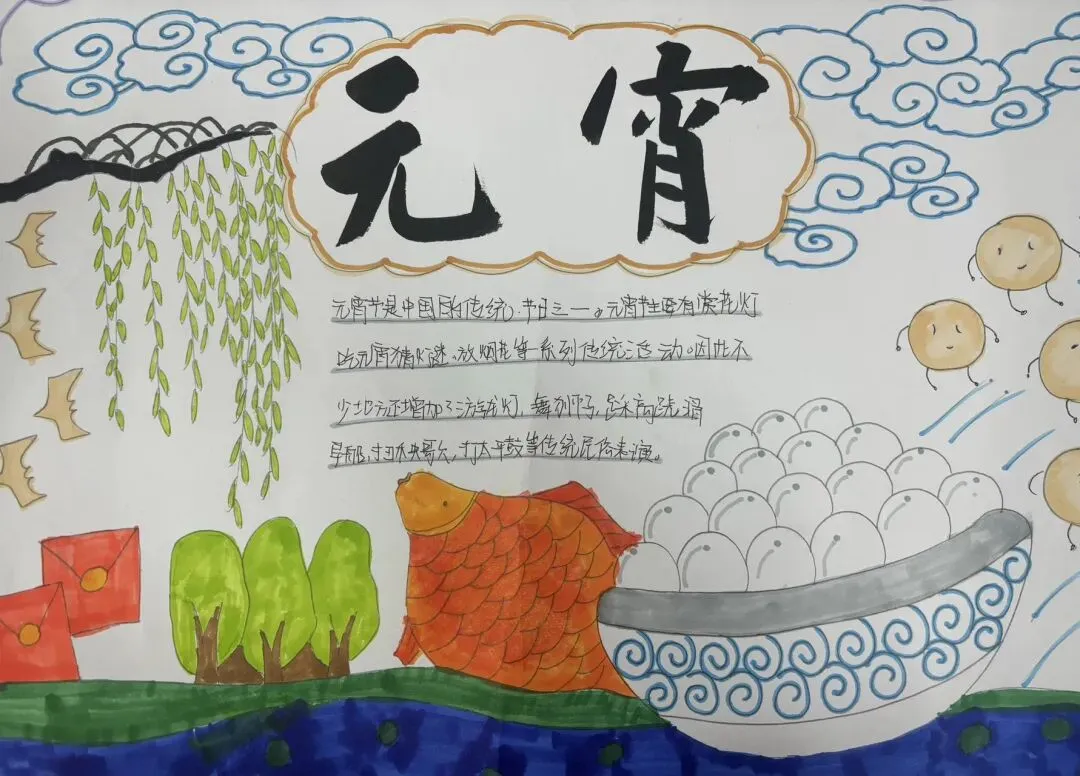 元宵
元宵节是中国的传统节日之一。元宵节主要有赏花灯
吃元宵猜灯谜、放烟花等一系列传统活动。因此不
少地方还增加了游龙灯,舞狮子,踩高跷,划
旱船,扭秧歌,打太平鼓等传统民俗表演。